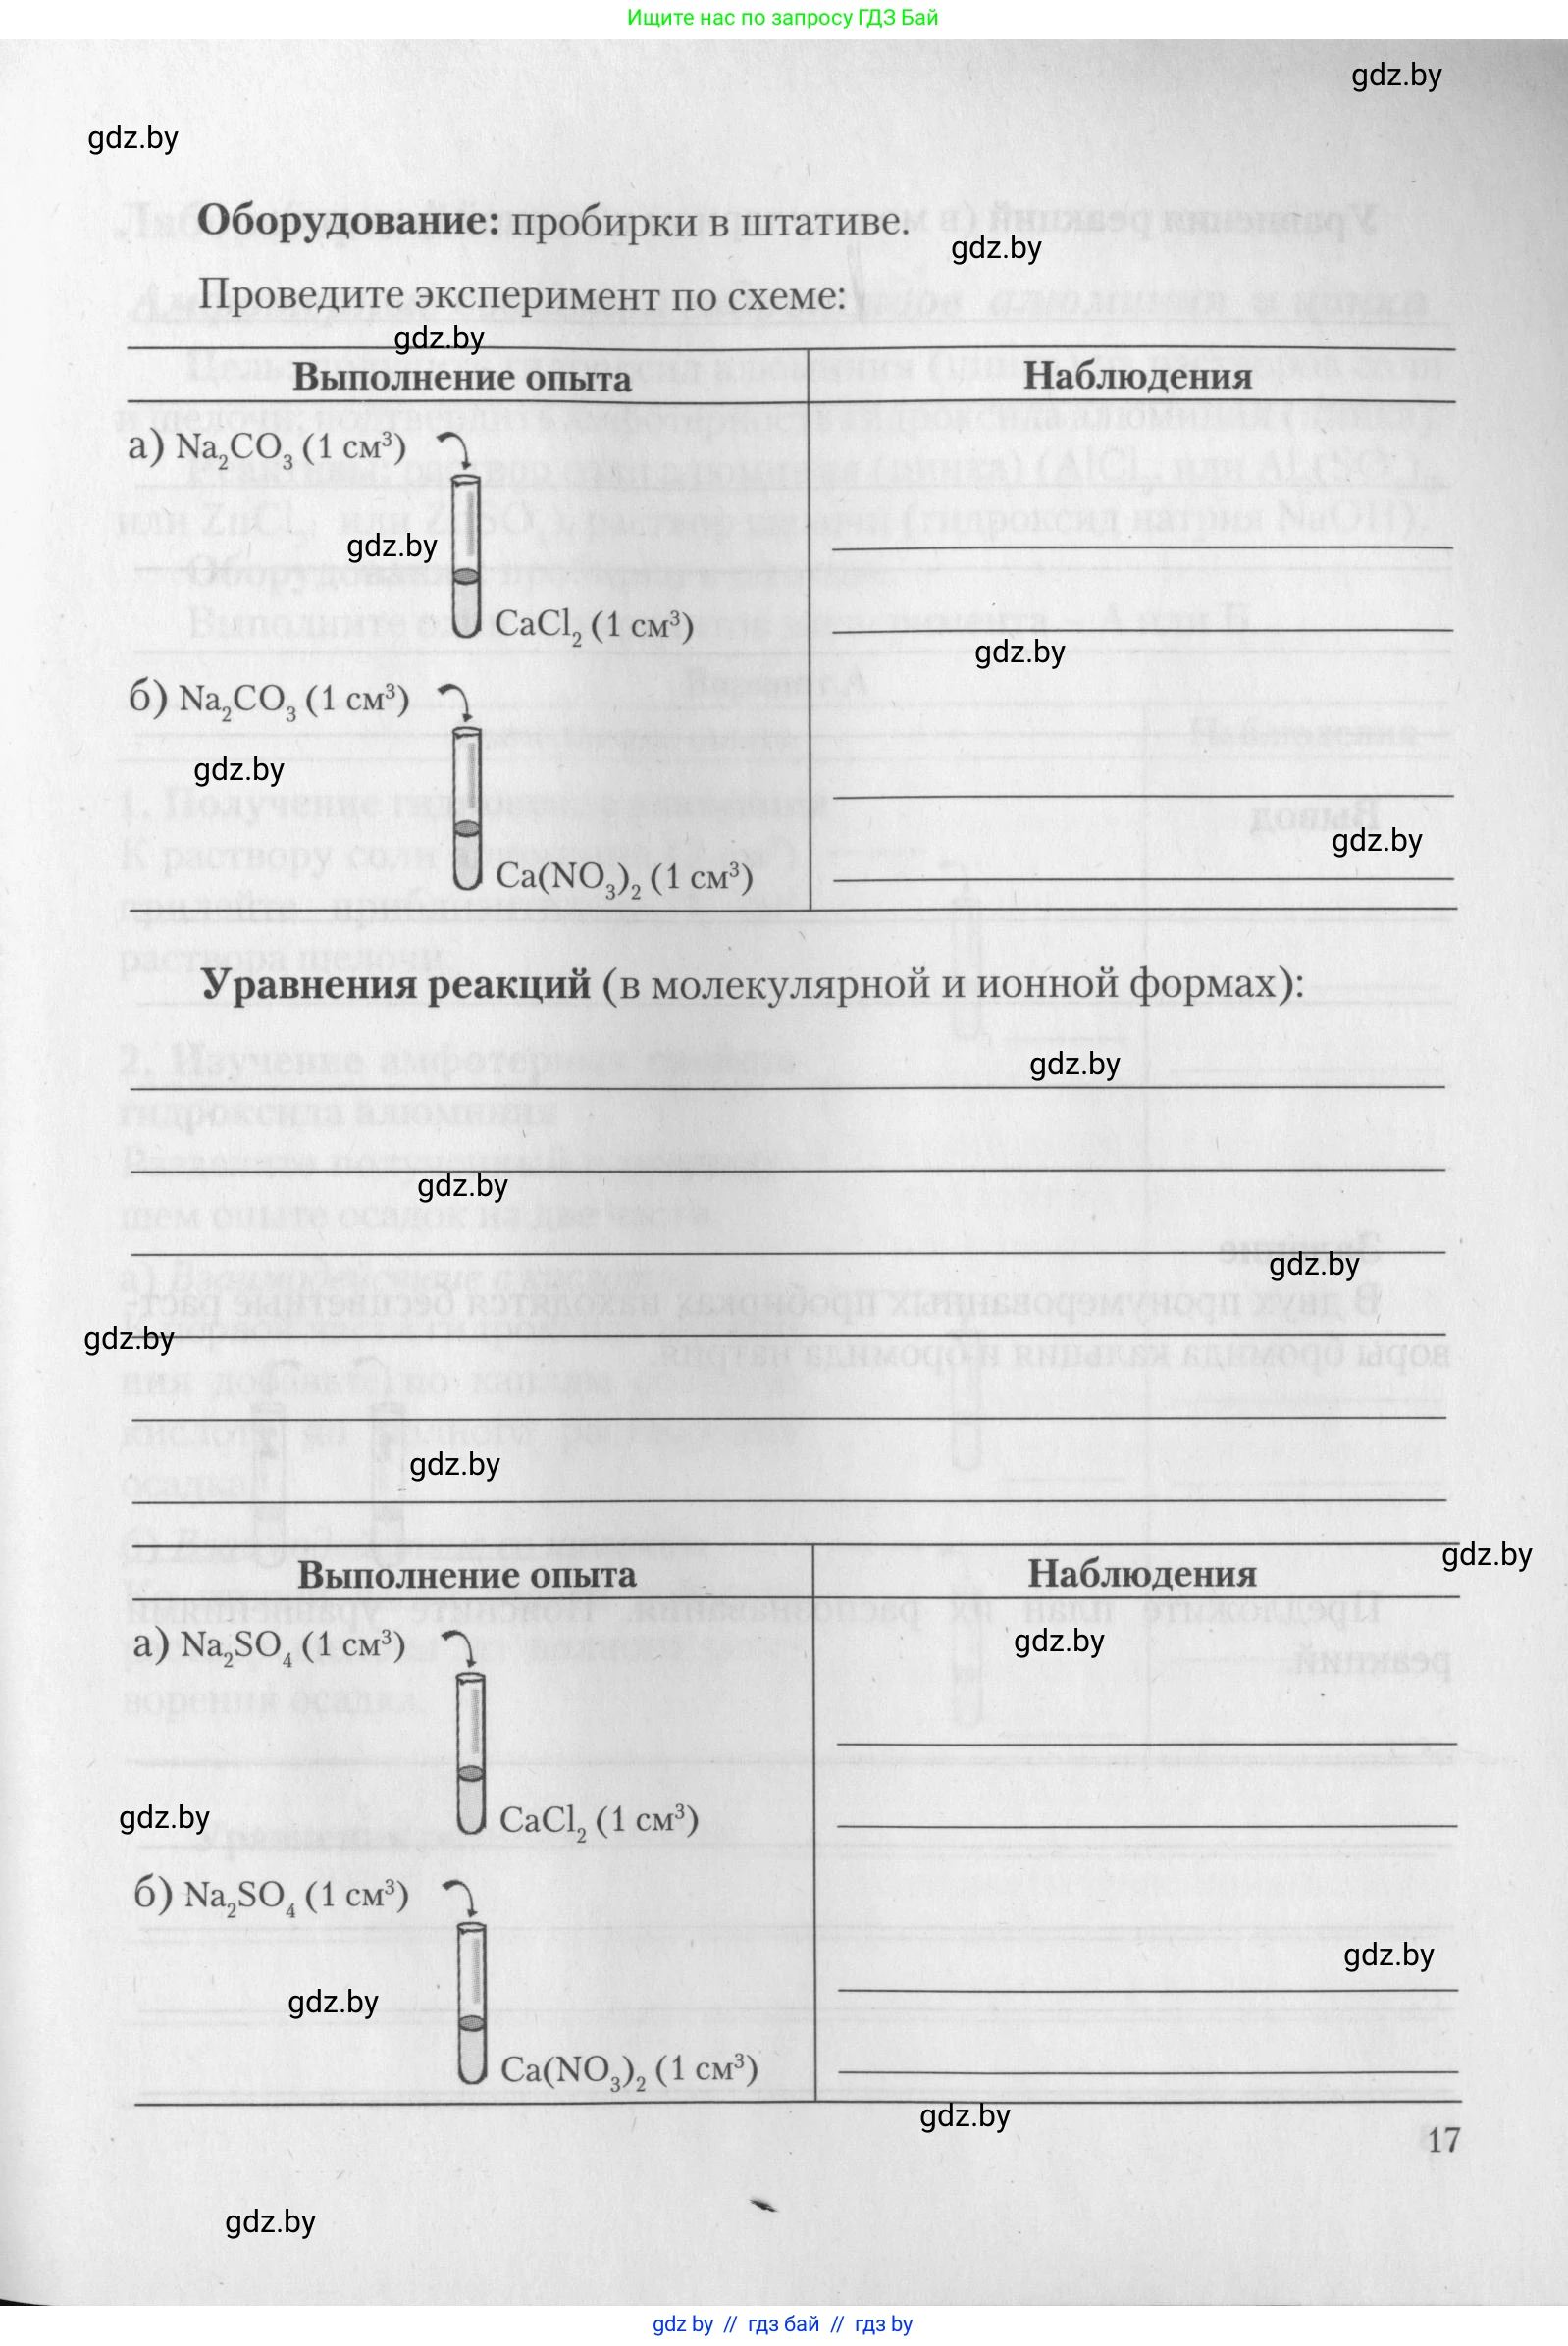 Ищите нас по запросу ГДЗ Бай
gdz.by
gdz.by
Оборудование: пробирки в штативе.
gdz.by
Проведите эксперимент по схеме:
gdz.by
Выполнение опыта
Наблюдения
а) Na₂CO₃ (1 см³)
gdz.by
CaCl₂ (1 см³)
gdz.by
б) Na₂CO₃ (1 см³)
gdz.by
gdz.by
Ca(NO₃)₂ (1 см³)
Уравнения реакций (в молекулярной и ионной формах):
gdz.by
gdz.by
gdz.by
gdz.by
gdz.by
gdz.by
Выполнение опыта
Наблюдения
а) Na₂SO₄ (1 см³)
gdz.by
gdz.by
CaCl₂ (1 см³)
б) Na₂SO₄ (1 см³)
gdz.by
gdz.by
Ca(NO₃)₂ (1 см³)
gdz.by
17
gdz.by
gdz by // гдз бай // гдз by